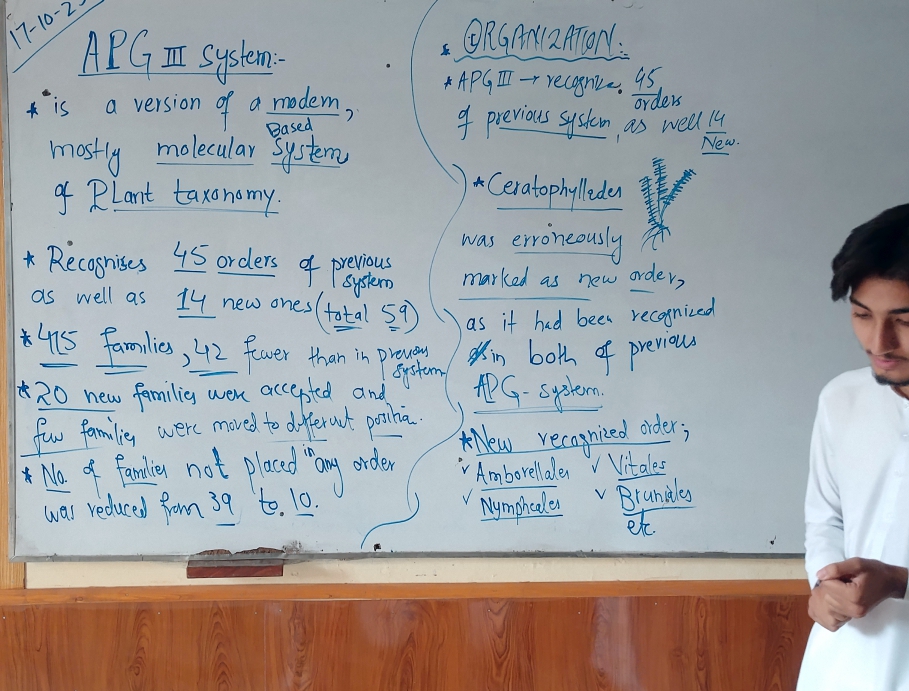 17-10-2
APG III System:-
* is a version of a modern,
mostly molecular Based System
of Plant taxonomy.
* Recognises 45 orders of previous system
as well as 14 new ones (total 59)
* 415 families, 42 fewer than in previous system
* 20 new families were accepted and
few families were moved to different position.
* No. of families not placed in any order
was reduced from 39 to 10.
* ORGANIZATION:
* APG III → recognize 45 orders
of previous system, as well 14 New.
* Ceratophyllales
was erroneously
marked as new order,
as it had been recognized
in both of previous
APG-system.
* New recognized order;
✓ Amborellales ✓ Vitales
✓ Nympheales ✓ Bruniales
etc.